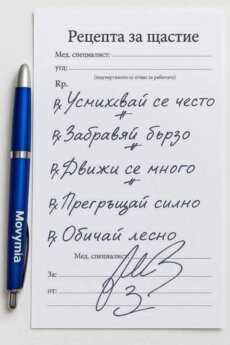 Рецепта за щастие
Мед. специалист:
уга:
(подчертаното се отнася за работата)
Rp.
Усмихвай се често
Забравяй бързо
Движи се много
Прегръщай силно
Обичай лесно
Мед. специалист:
За:
от:
Movymia